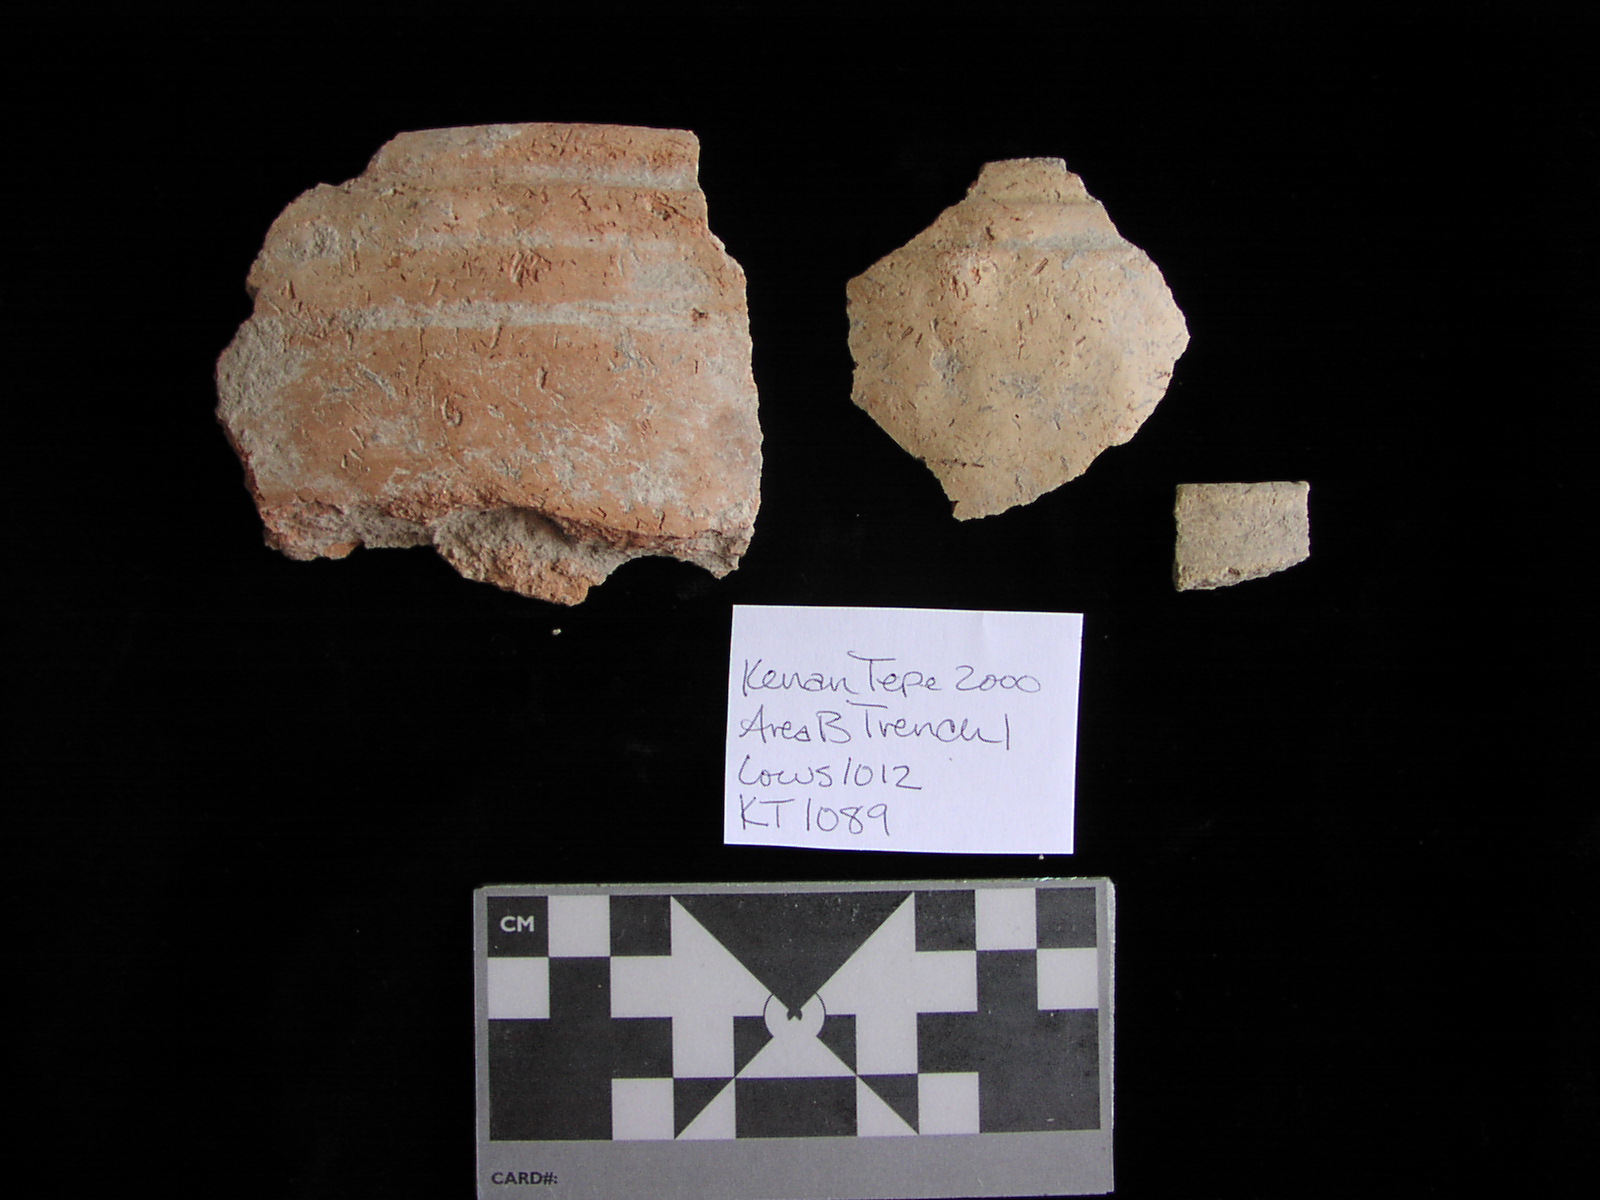 Kenan Tepe 2000
Area B Trench 1
Locus 1012
KT 1089
CM
CARD#: